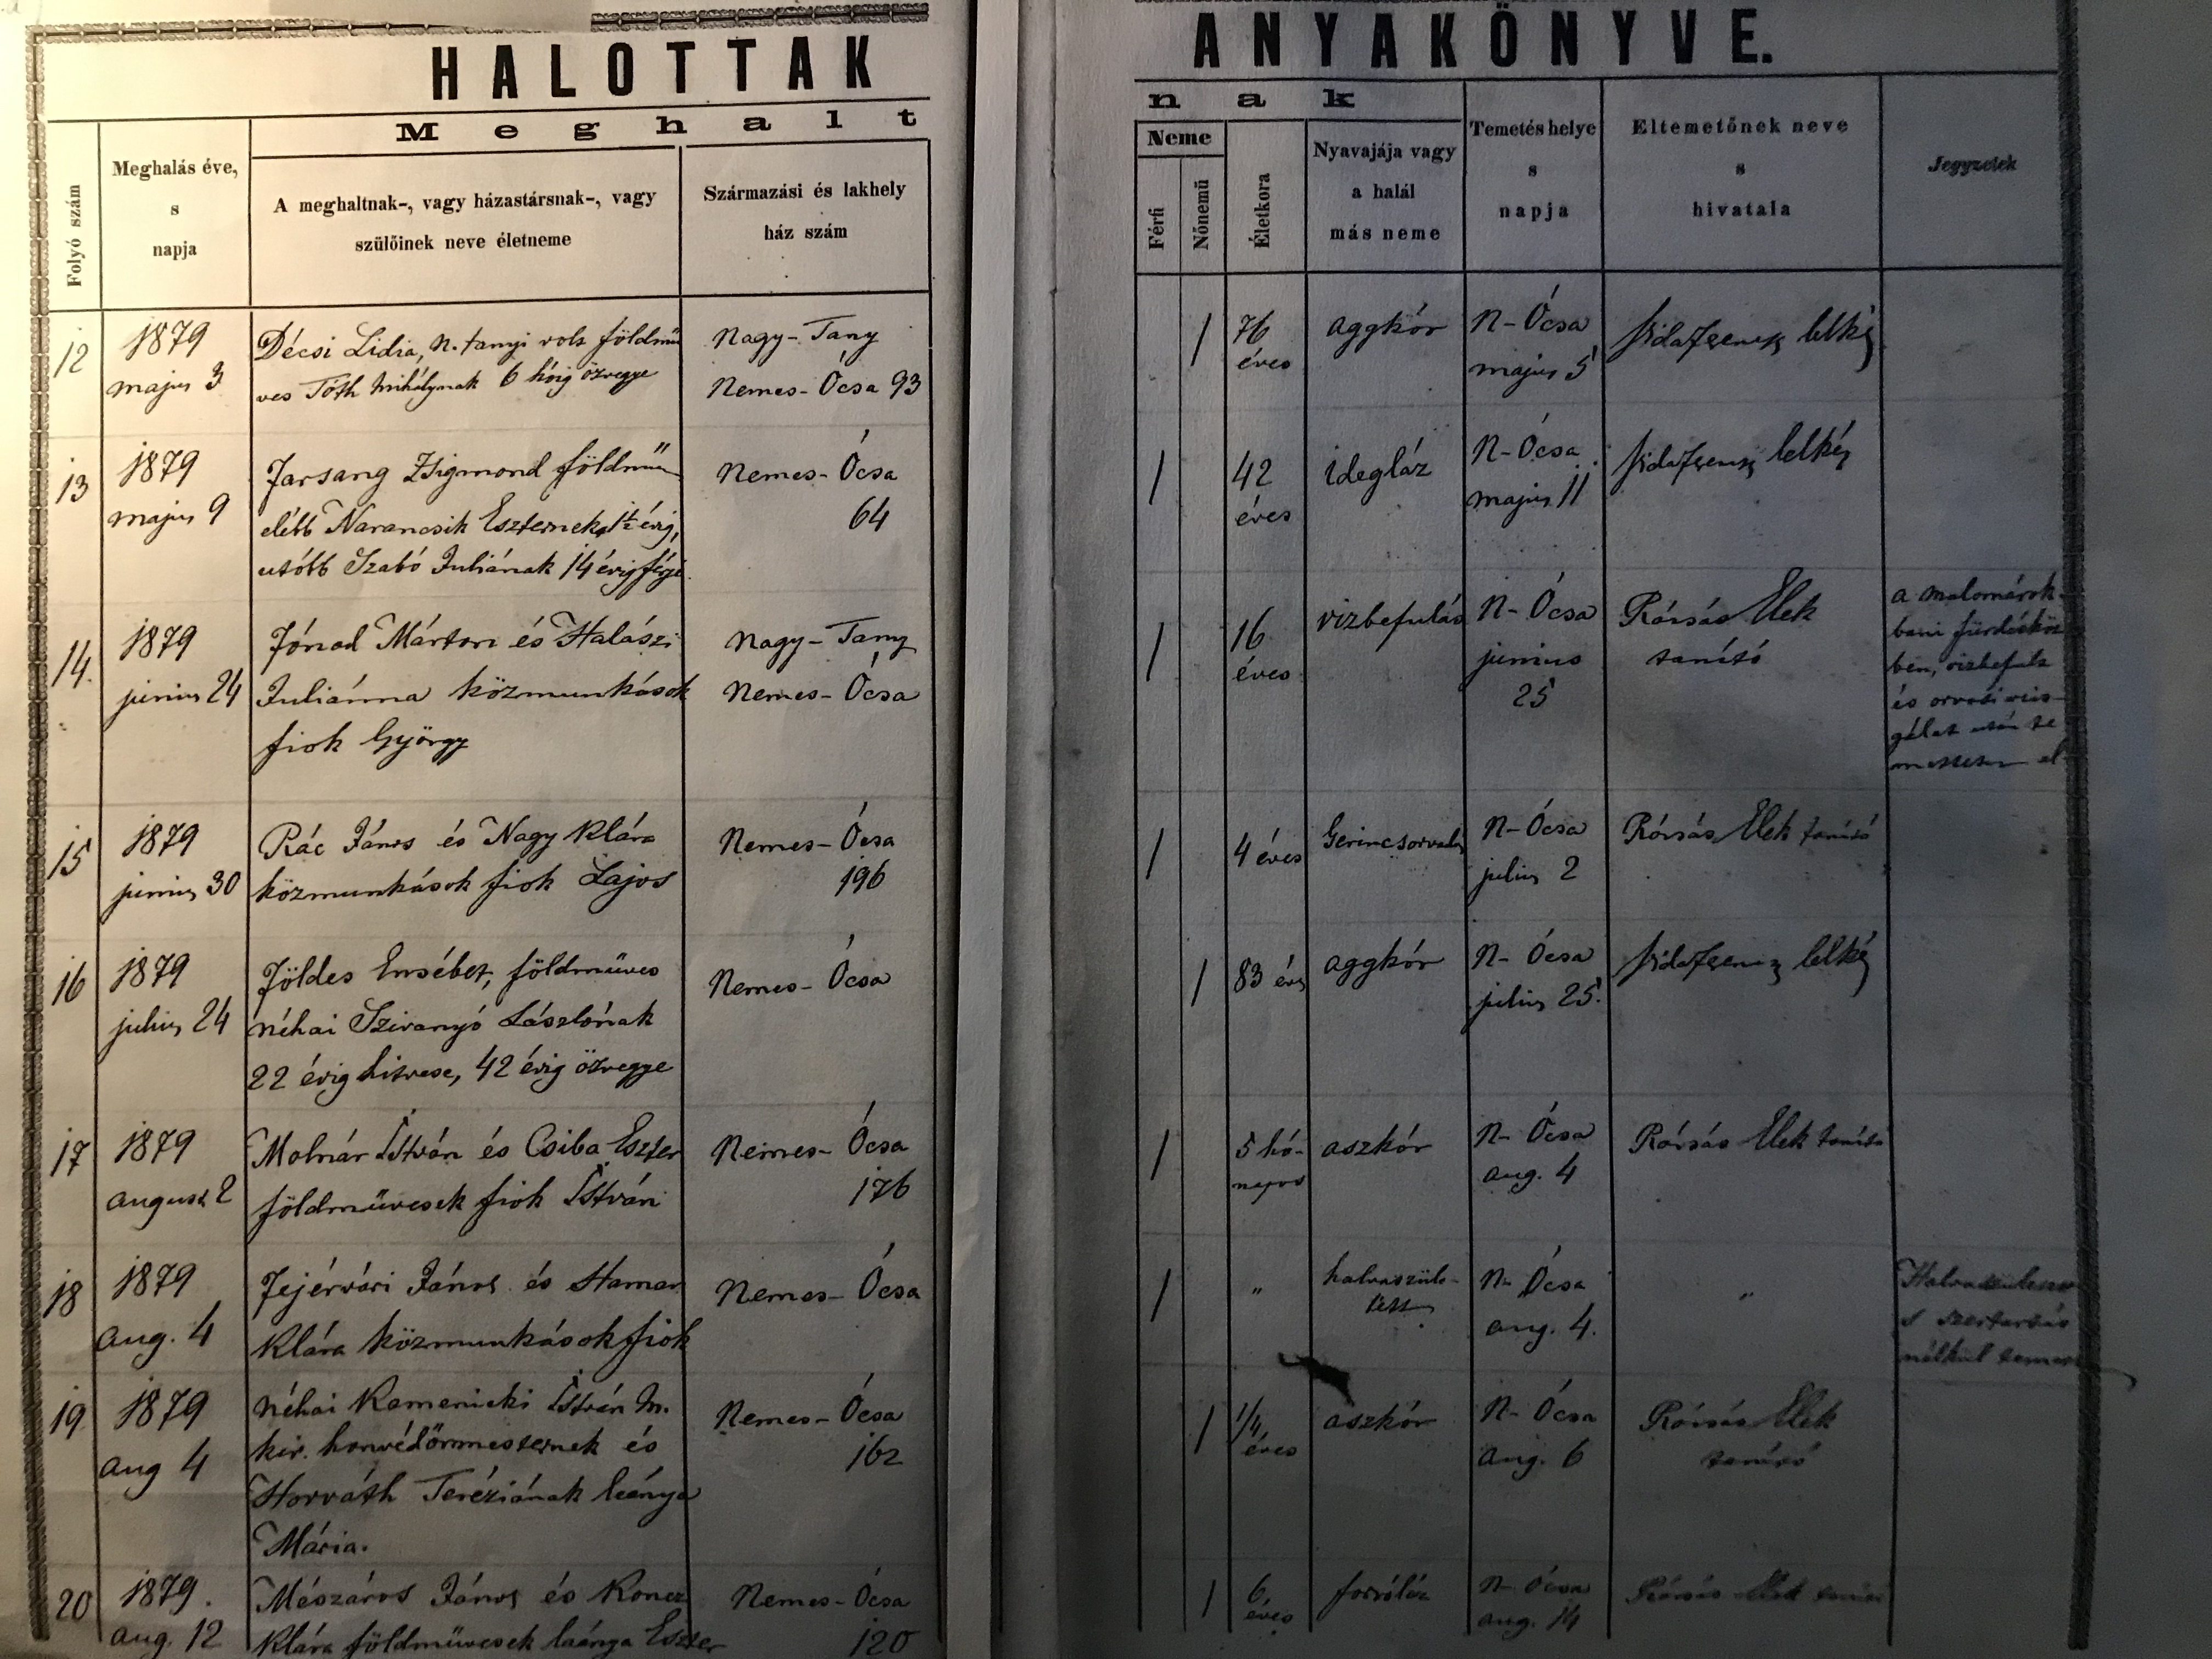 HALOTTAK ANYAKÖNYVE.
Meghaltnak
Folyó szám
Meghalás éve,
s
napja
A meghaltnak-, vagy házastársnak-, vagy
szülőinek neve életneme
Származási és lakhely
ház szám
Neme
Férfi
Nőnemű
Életkora
Nyavajája vagy
a halál
más neme
Temetés helye
s
napja
Eltemetőnek neve
s
hivatala
Jegyzetek
12
1879
május 3
Décsi Lidia, N. tanyi volt földmű
ves Tóth Mihálynak 6 hóig özvegye
Nagy-Tany
Nemes-Ócsa 93
1
76
éves
aggkór
N-Ócsa
május 5
lelkész
13
1879
május 9
Farsang Zsigmond földmű
elébb Narancsik Eszternek 1½ évig,
utóbb Szabó Juliának 14 évig férje
Nemes-Ócsa
64
1
42
éves
idegláz
N-Ócsa
május 11
lelkész
14.
1879
június 24
Fónod Márton és Halászi
Juliánna közmunkások
fiok György
Nagy-Tany
Nemes-Ócsa
1
16
éves
vizbefulás
N-Ócsa
június
25
Rózsás Elek
tanító
a malomárok-
bani fürdésköz
ben, vizbefult
és orvosi vizs-
gálat után te
el
15
1879
június 30
Rác János és Nagy Klára
közmunkások fiok Lajos
Nemes-Ócsa
196
1
4 éves
Gerincsorvadás
N-Ócsa
július 2
Rózsás Elek tanító
16
1879
július 24
Földes Ersébet, földműves
néhai Szivanyó Lászlónak
22 évig hitvese, 42 évig özvegye
Nemes-Ócsa
1
83 éves
aggkór
N-Ócsa
július 25.
lelkész
17
1879
august 2
Molnár István és Csiba Eszter
földművesek fiok István
Nemes-Ócsa
176
1
5 hó-
napos
aszkór
N-Ócsa
aug. 4
Rózsás Elek tanító
18
1879
aug. 4
Fejérvári János és Haman
Klára közmunkások fiok
Nemes-Ócsa
1
"
halvaszüle-
tett
N-Ócsa
aug. 4.
"
s szertartás
nélkül
19
1879
aug 4
néhai Kamenicki István M.
kir. honvédőrmesternek és
Horváth Teréziának leánya
Mária.
Nemes-Ócsa
162
1
1/4
éves
aszkór
N-Ócsa
aug. 6
Rózsás Elek
tanító
20
1879.
aug. 12
Mészáros János és Koncz
Klára földművesek leánya Eszter
Nemes-Ócsa
120
1
6
éves
forróláz
N-Ócsa
aug. 14
Rózsás Elek tanító